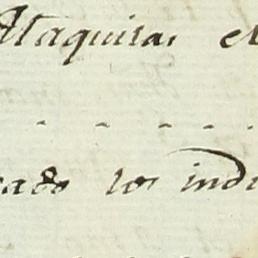 Ataquilas el
- - - - -
cado los indi